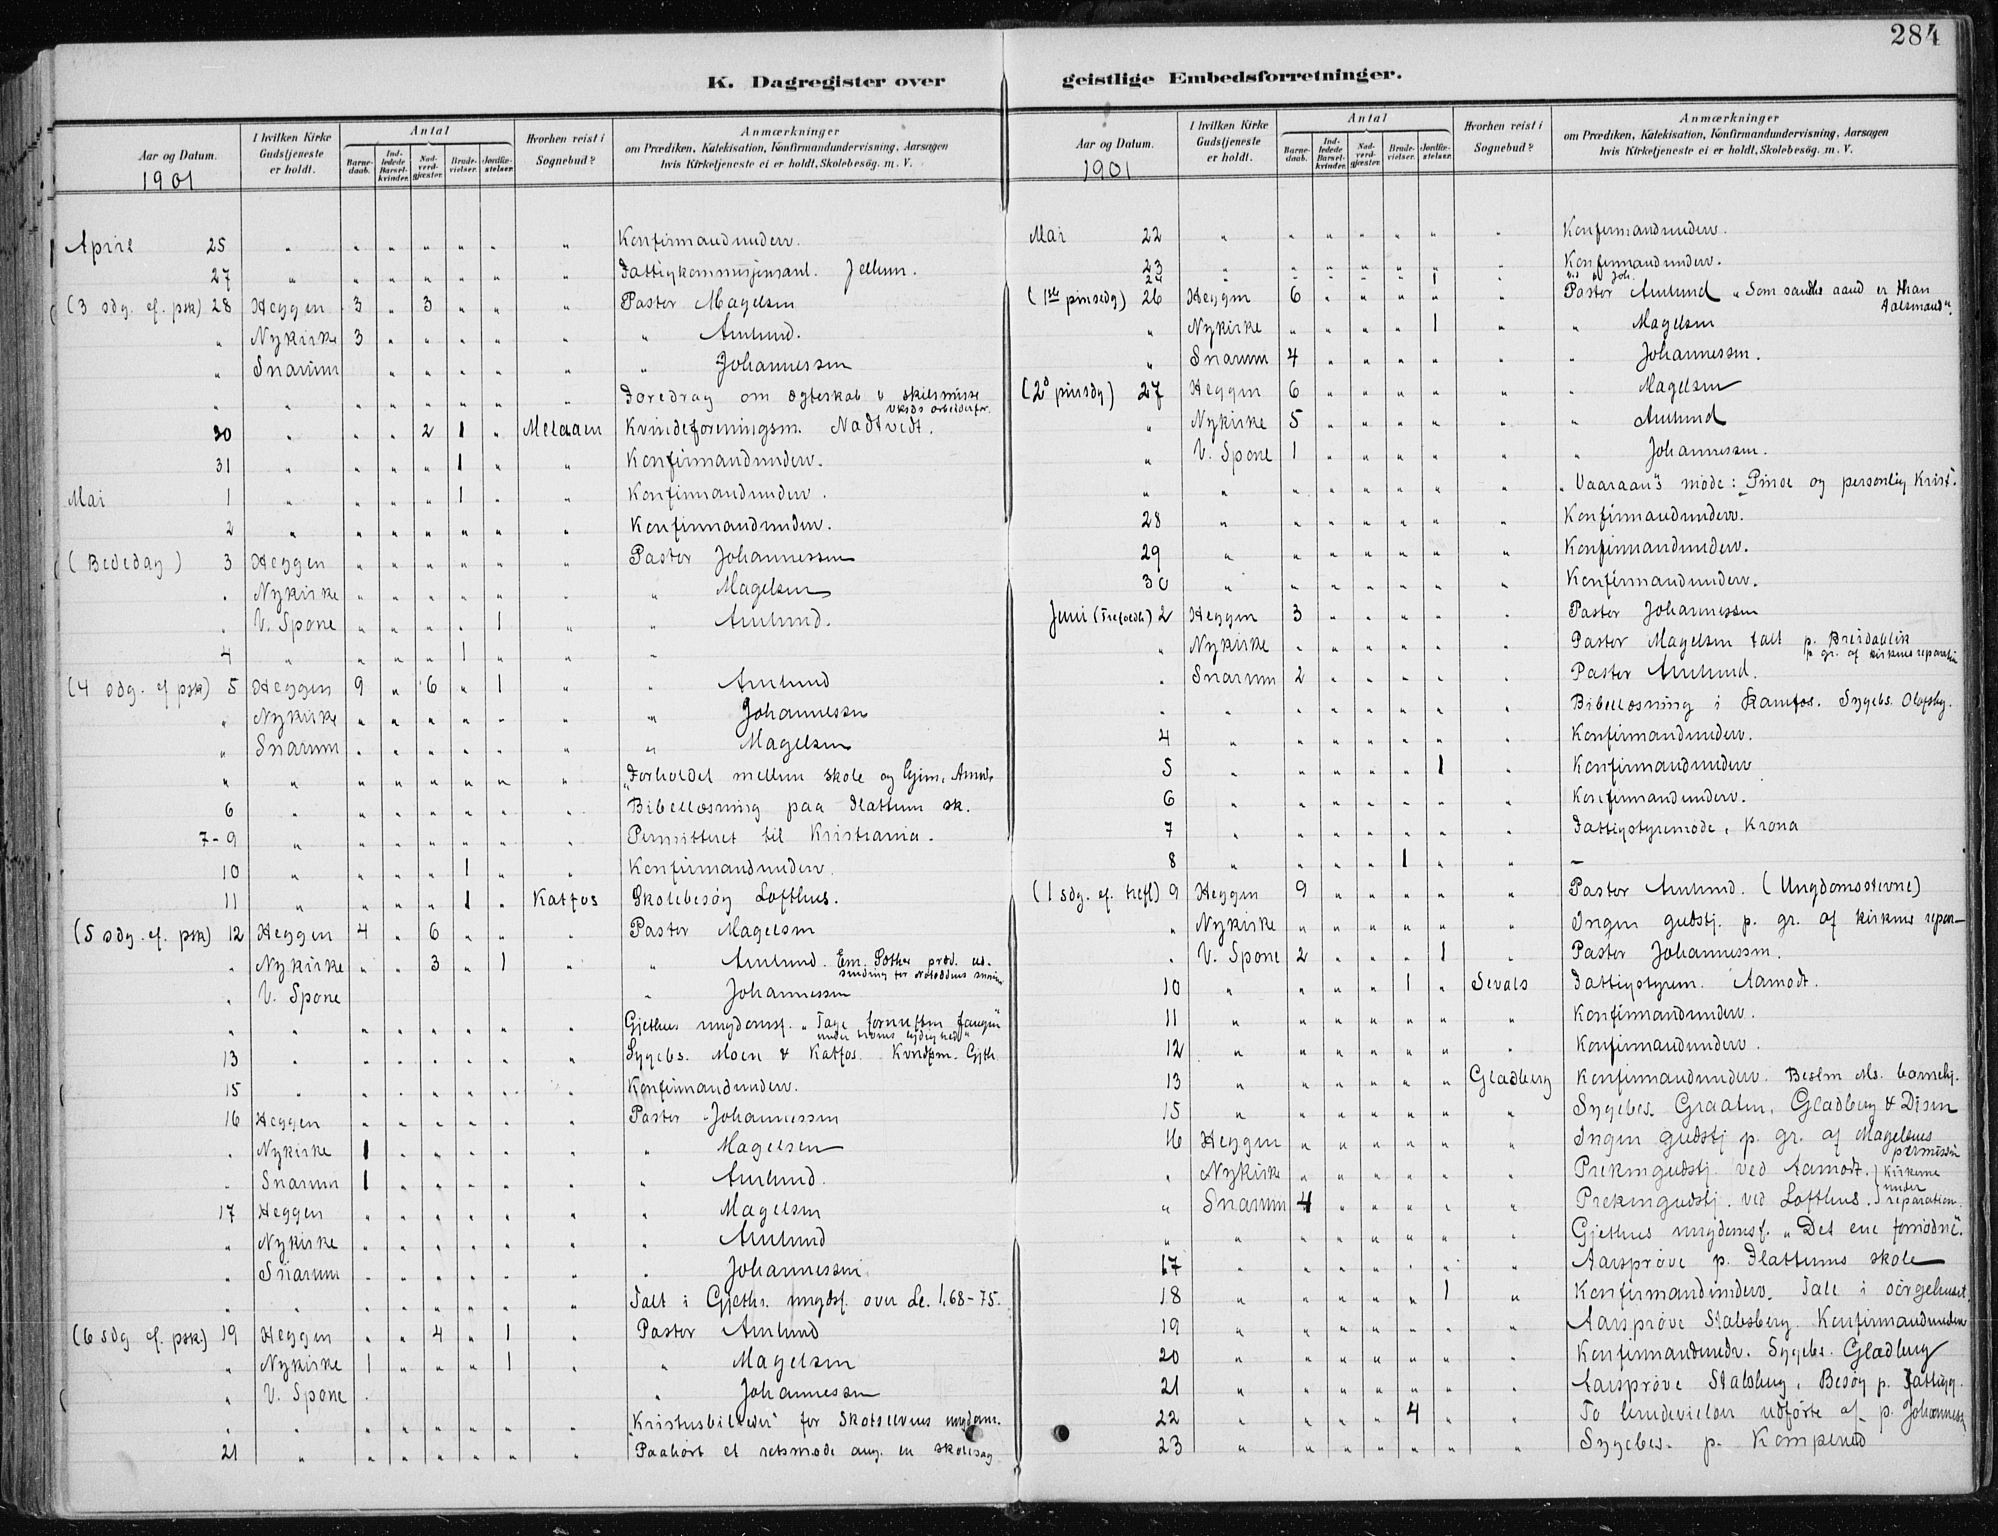 284
K. Dagregister over geistlige Embedsforretninger.
Aar og Datum. I hvilken Kirke Gudstjeneste er holdt. Antal Barnedaab. Indledede Barselkvinder. Nadverdgjæster. Brudevielser. Jordfæstelser. Hvorhen reist i Sognebud? Anmærkninger om Prædiken, Katekisation, Konfirmandundervisning, Aarsagen hvis Kirketjeneste ei er holdt, Skolebesøg. m. V.
1901
April 25 " " " " " " " Konfirmandunderv.
27 " " " " " " " Fattigkommisjonsanl. Jellum.
(3 sdg. ef. psk) 28 Heggen 3 " 3 " " " Pastor Magelsen
" Nykirke 3 " " " " " " Amlund.
" Snarum " " " " " " Johannessen
" " " " " " " " Foredrag om ægteskab & skilsmisse
30 " " " 2 1 " Melaaen Kvindeforeningsm. Nadtvedt.
31 " " " " 1 " " Konfirmandunderv.
Mai 1 " " " " 1 " " Konfirmandunderv.
2 " " " " " " " Konfirmandunderv.
(Bededag) 3 Heggen " " " " " " Pastor Johannessen
" Nykirke " " " " " " " Magelsen
" V. Spone " " " " 1 " " Amlund.
4 " " " " 1 " " "
(4 sdg. ef psk) 5 Heggen 9 " 6 " 1 " " Amlund
" Nykirke " " " " " " " Johannessen
" Snarum " " " " " " " Magelsen
" " " " " " " " "Forholdet mellem skole og
6 " " " " " " " Bibellæsning paa Flattum sk.
7-9 " " " " " " " Permitteret til Kristiania.
10 " " " " 1 " " Konfirmandunderv.
11 " " " " 1 " Katfos Skolebesøg Lofthus.
(5 sdg. ef. psk) 12 Heggen 4 " 6 " " " Pastor Magelsen
" Nykirke " " 3 " 1 " " Amlund. Em.
" V. Spone " Johannessen
" " " " " " " " Gjethus ungdomsf. "Tage fornuften fangen under troens lydighed"
13 " " " " " " " Sygebs. Moen & Katfos. Gjeth.
15 " " " " " " " Konfirmandunderv.
16 Heggen " " " " " " Pastor Johannessen
" Nykirke 1 " " " " " " Magelsen
" Snarum 1 " " " " " " Amlund.
17 Heggen " " " " " " " Magelsen
" Nykirke " " " " " " " Amlund
" Snarum " " " " " " " Johannessen
" " " " " " " " Talt i Gjeths. ungdsf. over Lc. 1,68-75.
(6 sdg ef. psk) 19 Heggen " " 4 " 1 " Pastor Amlund
" Nykirke 1 " " " 1 " " Magelsen
" V. Spone " " Johannessen
" " " " " " " " "Kristusbilleder" for Skotselvens ungdom.
21 " " " " " " " Paahørt et retsmøde ang. en skolesag
Aar og Datum. I hvilken Kirke Gudstjeneste er holdt. Antal Barnedaab. Indledede Barselkvinder. Nadverdgjæster. Brudevielser. Jordfæstelser. Hvorhen reist i Sognebud? Anmærkninger om Prædiken, Katekisation, Konfirmandundervisning, Aarsagen hvis Kirketjeneste ei er holdt, Skolebesøg. m. V.
1901
Mai 22 " " " " " " " Konfirmandunderv.
23 " " " " " " " Konfirmandunderv.
24 " " " " " 1 " ved p. Joh.
(1ste pinsedg) 26 Heggen 6 " " " " " Pastor Amlund "Som sandhs aand er Han Talsmand".
" Nykirke " " " " 1 " " Magelsen
" Snarum 4 " " " " " " Johannessen.
(2d pinsdg) 27 Heggen 6 " " " " " " Magelsen
" Nykirke 5 " " " " " " Amlund
" V. Spone 1 " " " " " " Johannessen.
" " " " " " " " "Vaaraan"s møde: "Pinse og personlig Krist".
28 " " " " " " " Konfirmandunderv.
29 " " " " " " " Konfirmandunderv.
30 " " " " " " " Konfirmandunderv.
Juni (Trefoldh) 2 Heggen 3 " " " " " Pastor Johannessen
" Nykirke " " " " " " Pastor Magelsen talt p. Breidablik p. gr. af kirkens reparation
" Snarum 2 " " " " " Pastor Amlund.
" " " " " " " " Bibellæsning i Ramfos. Sygebs. Olafsby.
4 " " " " " " " Konfirmandunderv.
5 " " " " " 1 " Konfirmandunderv
6 " " " " " " " Konfirmandunderv.
7 " " " " " " " Fattigstyremøde, Krona
8 " " " " 1 " " –
(1 sdg. ef. trefl) 9 Heggen 9 " " " " " Pastor Amlund. (Ungdomsstevne)
" Nykirke " " " " " " Ingen gudstj. p. gr. af kirkens repar–
" V. Spone 2 " " " 1 " Pastor Johannessen.
10 " " " " 1 " Sevals Fattigstyrem. Aamodt.
11 " " " " " " " Konfirmandunderv.
12 " " " " " " " Konfirmandunderv.
13 " " " " " " Gladberg Konfirmandunderv. Ms. barnehj.
15 " " " " " " " Sygebes. Graaten, Gladberg & Disen
16 Heggen " " " " " " Ingen gudstj p. gr. af Magelsens permission
" Nykirke " " " " " " Prekengudstj. ved Aamodt. } kirkerne under reparation.
" Snarum 4 " " " " " Prekengudstj. ved Lofthus.
" " " " " " " " Gjethus ungdomsf. "Det ene fornødne".
17 " " " " " " " Aarsprøve p. Flattums skole
18 " " " " " 1 " Konfirmandunderv. Tale i sørgehuset.
19 " " " " " " " Aarsprøve Stalsberg. Konfirmandunderv
20 " " " " " " " Konfirmandundv. Sygebs. Gladberg
21 " " " " " " " Aarsprøve Stalsberg, Besøg p. Fattigg.
22 " " " " 4 " " To brudevielser udførte af p. Johannessen
23 " " " " " " " Sygebes. p. Komperud